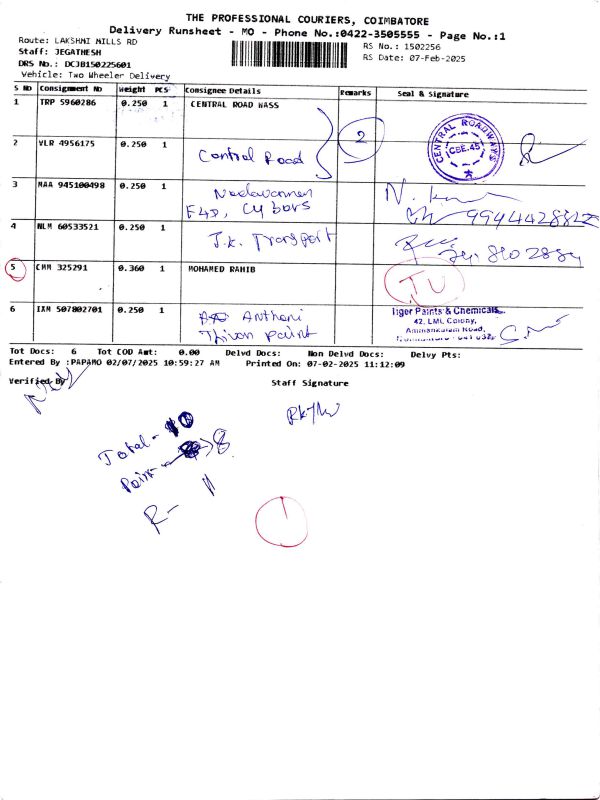 THE PROFESSIONAL COURIERS, COIMBATORE
Delivery Runsheet - MO - Phone No.:0422-3505555 - Page No.:1
Route: LAKSHMI MILLS RD
Staff: JEGATHESH
DRS No.: DCJB150225601
Vehicle: Two Wheeler Delivery
RS No.: 1502256
RS Date: 07-Feb-2025
S No Consignment No Weight PCS Consignee Details Remarks Seal & Signature
1 TRP 5960286 0.250 1 CENTRAL ROAD WASS
2
2 VLR 4956175 0.250 1 Central Road
CENTRAL ROADWAYS
CBE.45
3 MAA 945100498 0.250 1
9944428822
4 NLM 60533521 0.250 1 J.K. Transport
5 CMM 325291 0.360 1 MOHAMED RAHIB TU
6 IXM 507802701 0.250 1 Anthoni
Thivan paint
Tiger Paints & Chemicals
42, LML Colony,
Ammankulam Road,
Tot Docs: 6 Tot COD Amt: 0.00 Delvd Docs: Non Delvd Docs: Delvy Pts:
Entered By :PAPAMO 02/07/2025 10:59:27 AM Printed On: 07-02-2025 11:12:09
Verified By Staff Signature
Total - 10
Point - 8
R - 1
1